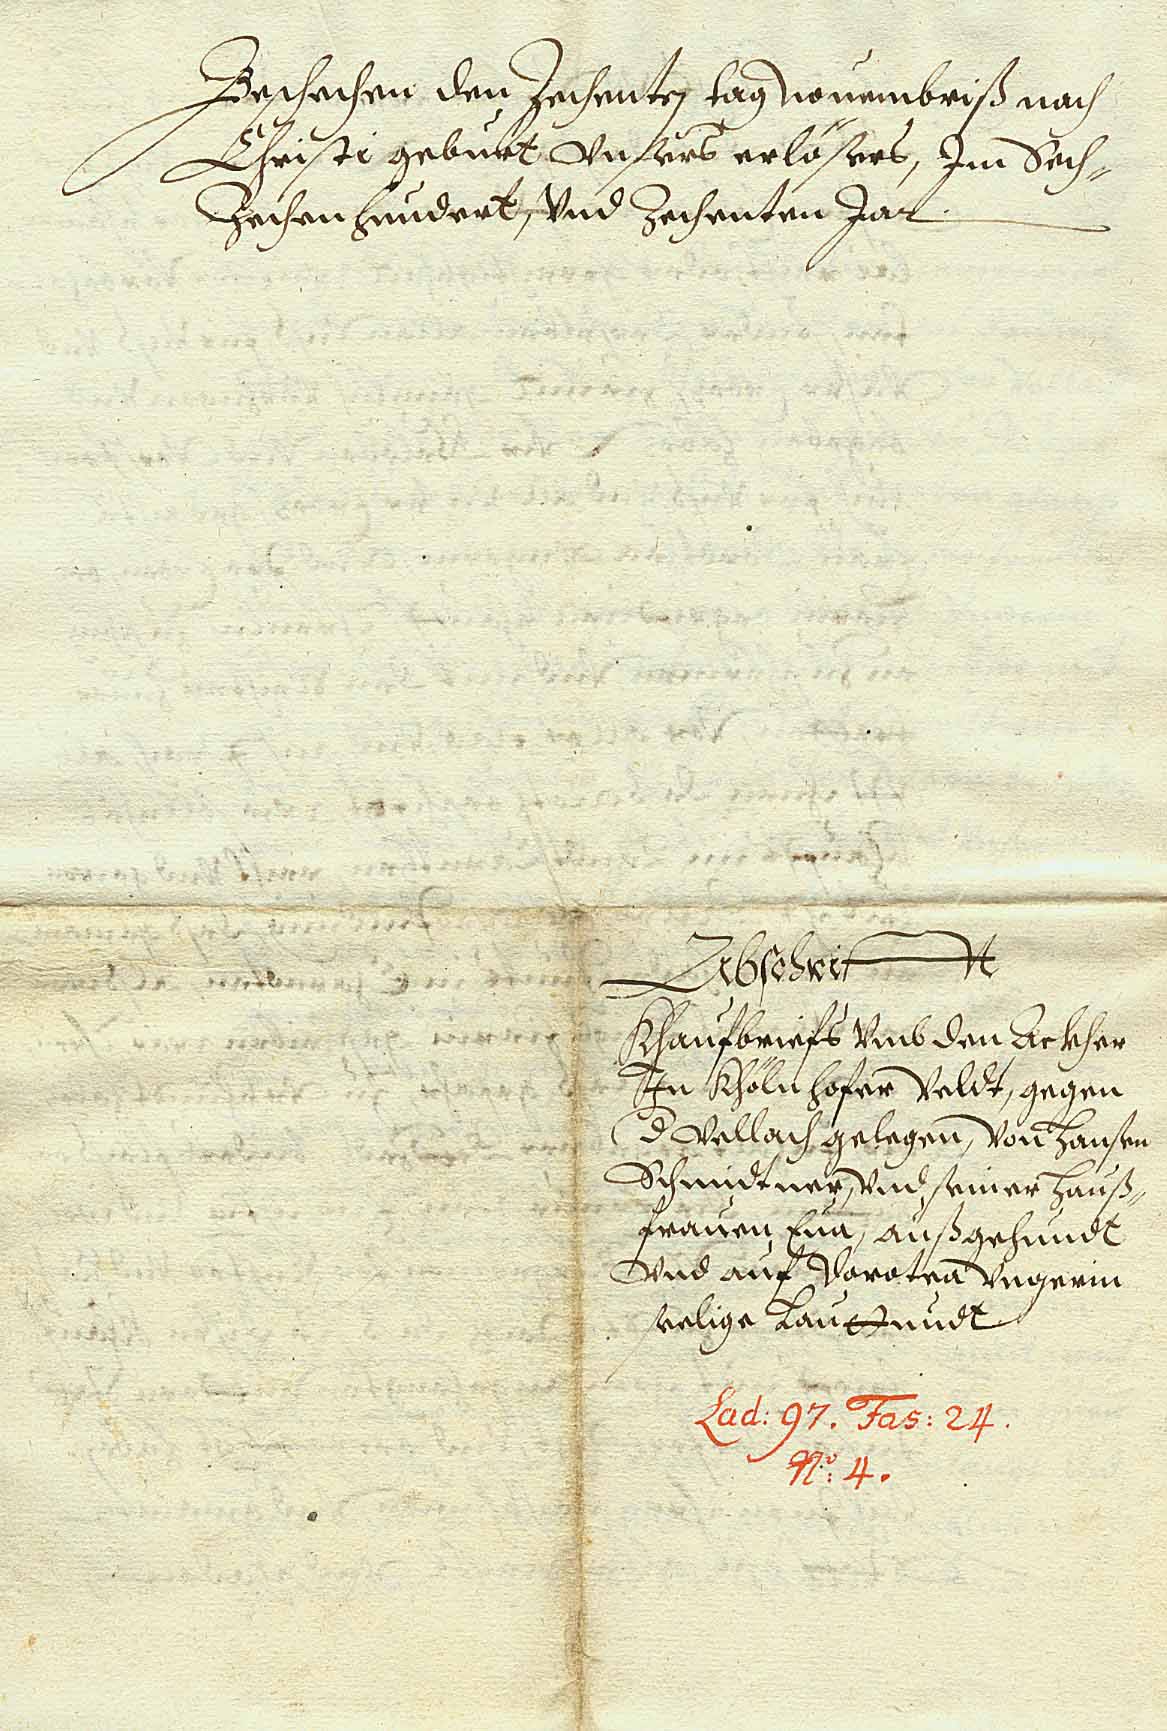 Beschechen den Zechenten tag Nouembriß nach
Christi geburt Vnsers erlösers, Im Sech-
Zechenhundert, Vnd Zechenten Jar.
Abschrifft
Khaufbriefs Vmb den Ackher
In Khölnhofer Veldt, gegen
d Vellach gelegen, Von Hansen
Schmidtner, Vnd seiner Hauß-
frauen, Eua, außgehundt
Vnd auf Dorotea Vngerin
selige lauttundt
Lad: 97. Fas: 24.
No: 4.